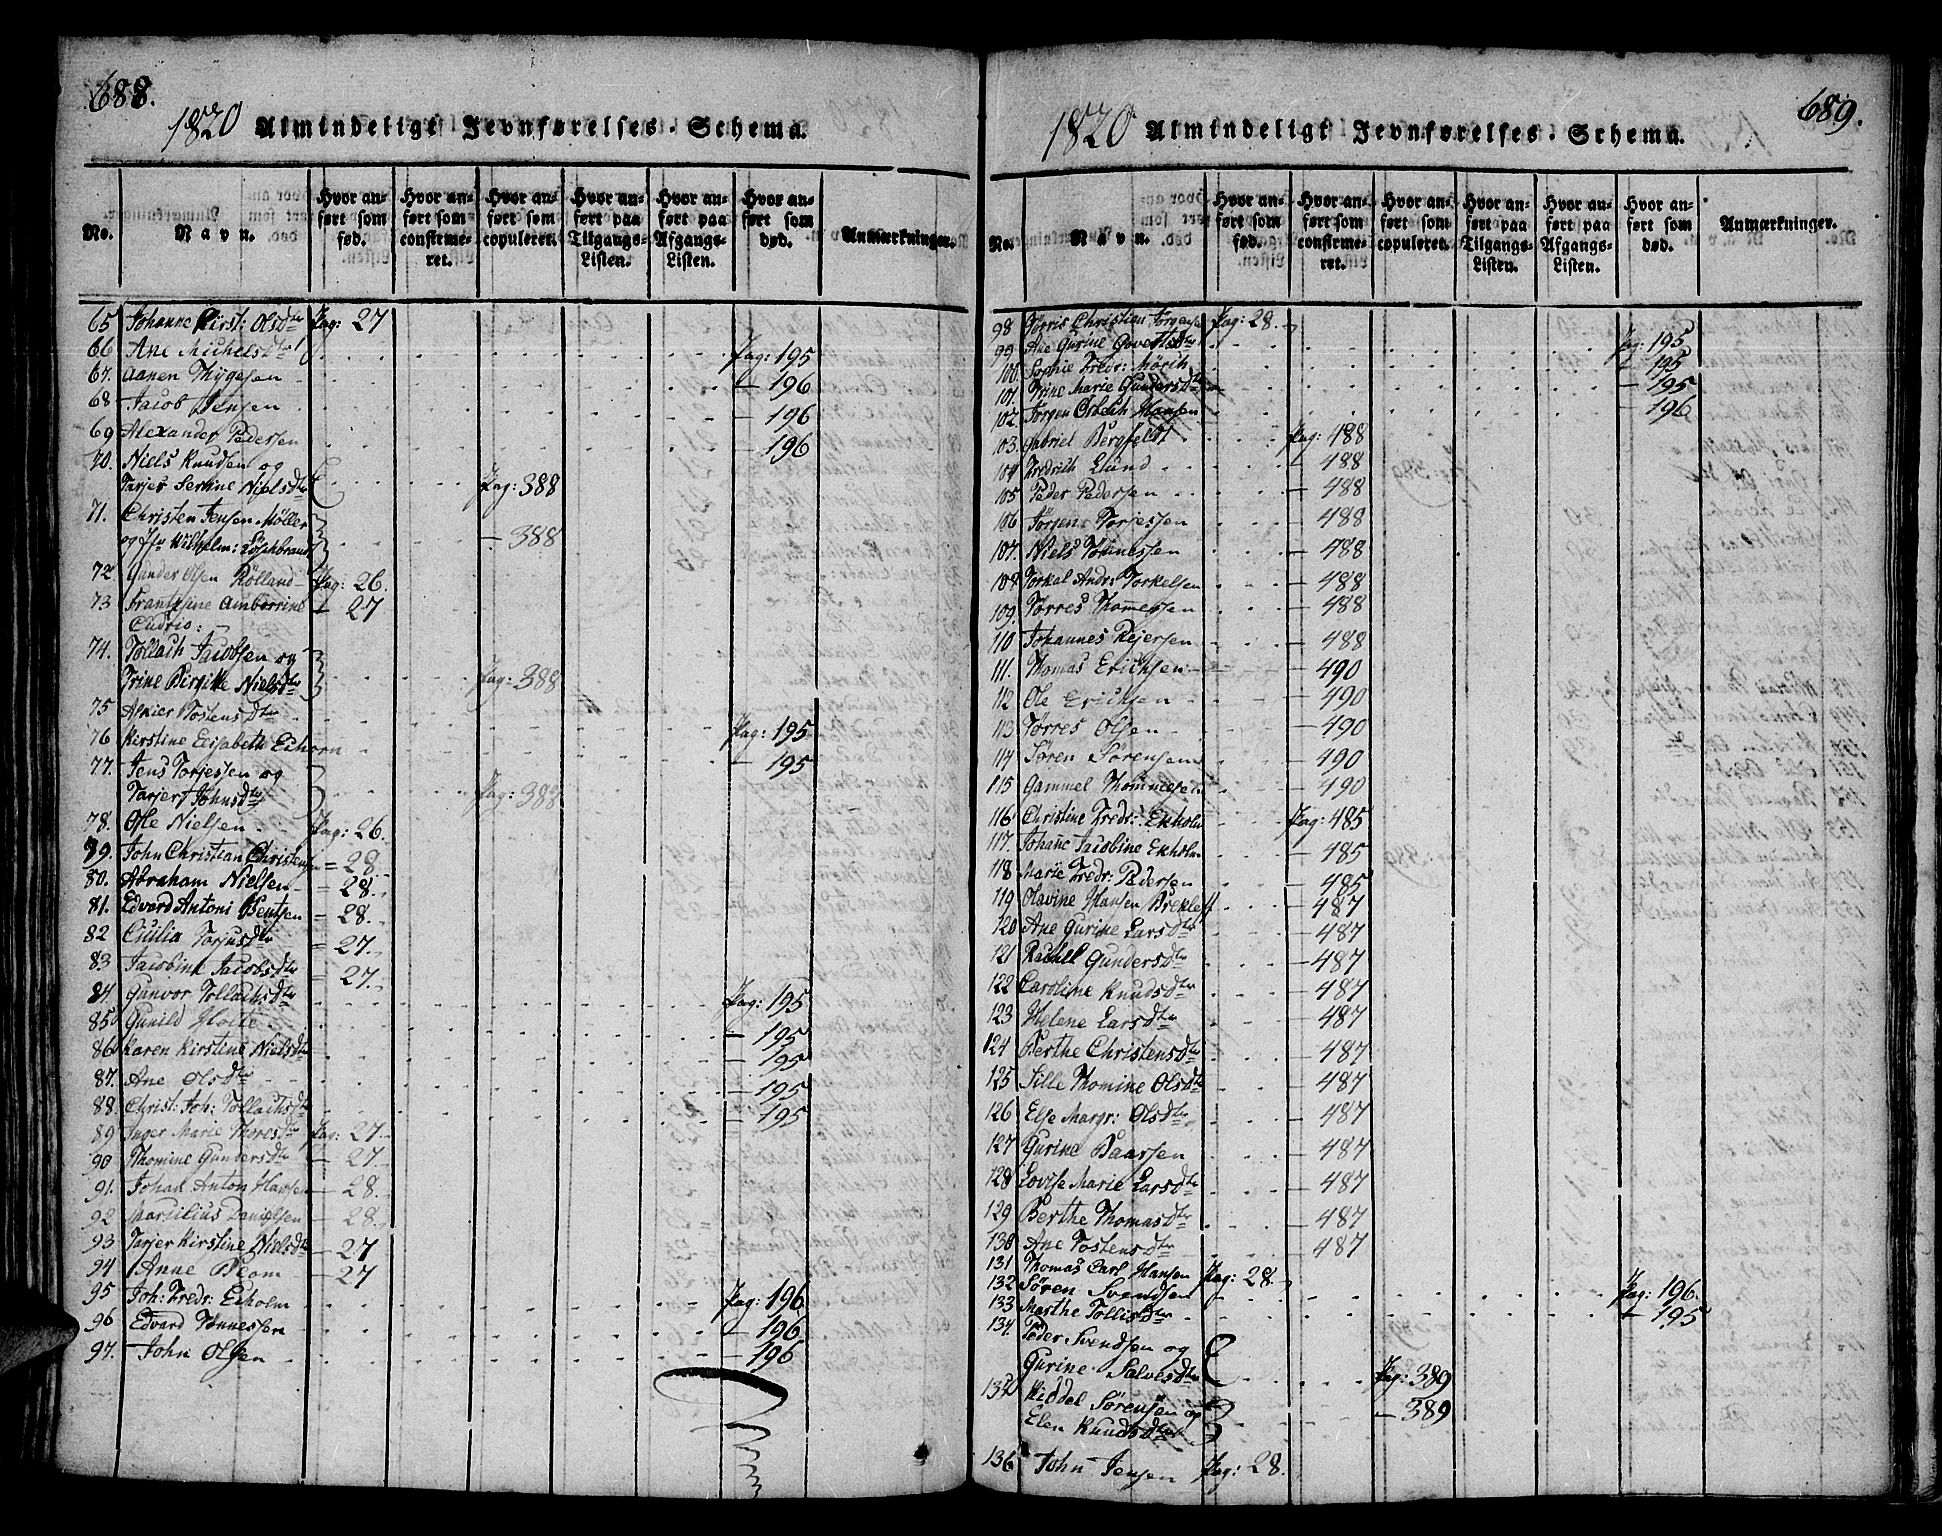 688.
1820 Almindeligt Jevnførelses-Schema.
No. Navn. Hvor anført som fød. Hvor anført som confirmeret. Hvor anført som copuleret. Hvor anført paa Tilgangs-Listen. Hvor anført paa Afgangs-Listen. Hvor anført som død. Anmærkninger.
65 Johanne Kirst: Olsdtr Pag: 27
66 Ane Michelsdtr Pag: 195
67. Aanen Thygesen — 196
68 Jacob Jensen — 196
69 Alexander Pedersen — 196
70. Niels Knudsen og
Tarjer Serine Nielsdtr Pag: 388
71. Christen Jensen Møller
og Jfr Wilhelm: — 388
72. Gunder Olsen Rølland Pag: 26.
73 Frantzine Amborrine — 27
74. Tollach Jacobsen og
Trine Birgitte Nielsdtr Pag: 388
75 Tostensdtr Pag: 195
76 Kirstine Elisabeth Echorn — 195
77. Jens Torjessen og
Tarjer Johnsdtr Pag: 388
78. Ole Nielsen. Pag: 26.
79. John Christian Christensen = 28.
80. Abraham Nielsen — 28.
81. Edvard Antoni Bentsen = 28.
82 Cecilia Torjusdtr = 27.
83 Jacobine Jacobsdtr = 27.
84. Gunvor Tollachsdtr Pag: 195
85 Gunild Holte — 195
86 Karen Kirstine Nielsdtr — 195
87. Ane Olsdtr — 195
88. Christ: Joh: Tollachsdtr — 195
89 Inger Marie Thoresdtr Pag: 27.
90 Thomine Gundersdtr — 27.
91. Johan Anton Hansen — 28.
92 Marcilius Danielsen — 28.
93. Tarjer Kirstine Nielsdtr — 27
94 Anne Beom — 27
95 Joh: Fredr: Echolm Pag: 196
96 Edvard Tønnessen — 196
97. John Olsen — 196
689.
1820 Almindeligt Jevnførelses-Schema.
No. Navn. Hvor anført som fød. Hvor anført som confirmeret. Hvor anført som copuleret. Hvor anført paa Tilgangs-Listen. Hvor anført paa Afgangs-Listen. Hvor anført som død. Anmærkninger.
98 Jørris Christian Jørgensen Pag: 28.
99 Ane Gurine Govertsdtr Pag: 195
100. Sophie Fredr: Mörch — 195
101. Trine Marie Gundersdtr — 195
102. Jørgen Hansen — 196
103. Gabriel Bergfeldt Pag: 488
104 Fredrich Lund — 488
105 Peder Pedersen — 488
106 Jørgen Torjessen — 488
107. Niels Tønnessen — 488
108 Torkel Andr: Torkelsen — 488
109. Tørres Thommessen — 488
110 Johannes Rejersen — 488
111. Thomas Erichsen — 490
112 Ole Erichsen — 490
113 Tørres Olsen — 490
114 Søren Sørensen — 490
115 Gammel Thommesen — 490
116 Christine Fredr: Ekholm Pag: 485
117. Johane Jacobine Ekholm — 485
118 Marie Fredr: Pedersen — 485
119 Olavine Hansen — 487
120 Ane Gurine Larsdtr — 487
121 Rachel Gundersdtr — 487
122 Caroline Knudsdtr — 487
123 Helene Larsdtr — 487
124 Berthe Christensdtr — 487
125 Sille Thomine Olsdtr — 487
126 Else Margr: Olsdtr — 487
127 Gurine Baassen — 487
128 Lovise Marie Larsdtr — 487
129 Berthe Thomasdtr — 487
130 Ane Tostensdtr — 487
131 Thomas Carl Hansen Pag: 28.
132 Søren Svendsen Pag: 196.
133 Marthe Tollisdtr — 195
134. Peder Svendsen og
Gurine Salvesdtr Pag: 389
135 Kiddel Sørensen og
Elen Knudsdtr — 389
136 John Jensen Pag: 28.